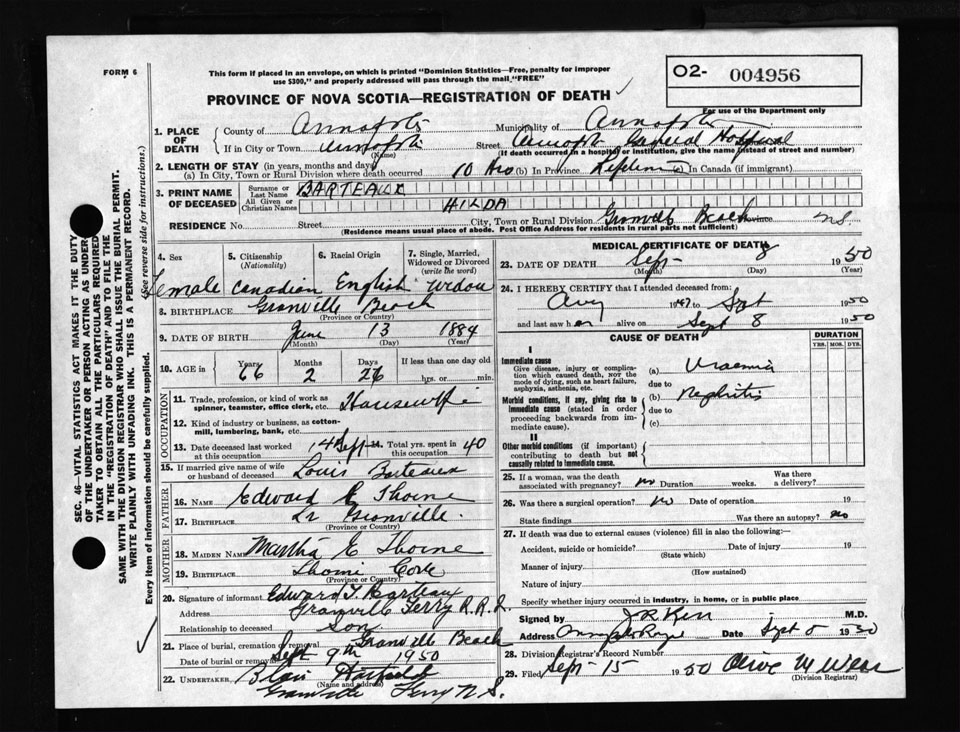 FORM 6
This form if placed in an envelope, on which is printed "Dominion Statistics—Free, penalty for improper
use $300," and properly addressed will pass through the mail "FREE"
O2- 004956
For use of the Department only
PROVINCE OF NOVA SCOTIA—REGISTRATION OF DEATH
1. PLACE OF DEATH
County of Annapolis Municipality of Annapolis
If in City or Town Annapolis Street Annapolis General Hospital
(Name) (If death occurred in a hospital or institution, give the name instead of street and number)
2. LENGTH OF STAY (in years, months and days)
(a) In City, Town or Rural Division where death occurred 10 hrs (b) In Province Lifetime (c) In Canada (if immigrant)
3. PRINT NAME OF DECEASED
Surname or Last Name BARTEAUX
All Given or Christian Names HILDA
RESIDENCE No. Street City, Town or Rural Division Granville Beach Province N.S.
(Residence means usual place of abode. Post Office Address for residents in rural parts not sufficient)
4. Sex 5. Citizenship (Nationality) 6. Racial Origin 7. Single, Married, Widowed or Divorced (write the word)
Female Canadian English Widow
8. BIRTHPLACE Granville Beach
(Province or Country)
9. DATE OF BIRTH June 13 1884
(Month) (Day) (Year)
10. AGE in Years Months Days If less than one day old
66 2 26 hrs. or min.
OCCUPATION
11. Trade, profession, or kind of work as
spinner, teamster, office clerk, etc. Housewife
12. Kind of industry or business, as cotton-
mill, lumbering, bank, etc.
13. Date deceased last worked at this occupation Sept 14. Total yrs. spent in this occupation 40
15. If married give name of wife
or husband of deceased Louis Barteaux
FATHER
16. NAME Edward E Thorne
17. BIRTHPLACE Lr Granville
(Province or Country)
MOTHER
18. MAIDEN NAME Martha E Thorne
19. BIRTHPLACE Cove
(Province or Country)
20. Signature of informant Edward T. Barteaux
Address Granville Ferry R.R. 2
Relationship to deceased Son
21. Place of burial, cremation or removal Granville Beach
Date of burial or removal Sept 9th 1950
22. UNDERTAKER Blair
(Name and address)
Granville Ferry N.S.
MEDICAL CERTIFICATE OF DEATH
23. DATE OF DEATH Sept 8 1950
(Month) (Day) (Year)
24. I HEREBY CERTIFY that I attended deceased from:
Aug 1947 to Sept 1950
and last saw her alive on Sept 8 1950
CAUSE OF DEATH DURATION
YRS. MOS. DYS.
I
Immediate cause
Give disease, injury or complica-
tion which caused death, not the
mode of dying, such as heart failure,
asphyxia, asthenia, etc.
(a) Uraemia
due to
Morbid conditions, if any, giving rise to
immediate cause (stated in order
proceeding backwards from im-
mediate cause).
(b) Nephritis
due to
(c)
II
Other morbid conditions (if important)
contributing to death but not
causally related to immediate cause.
25. If a woman, was the death
associated with pregnancy? no Duration weeks. Was there a delivery?
26. Was there a surgical operation? no Date of operation 19
State findings Was there an autopsy? no
27. If death was due to external causes (violence) fill in also the following:
Accident, suicide or homicide? Date of injury 19
(State which)
Manner of injury
(How sustained)
Nature of injury
Specify whether injury occurred in industry, in home, or in public place
Signed by M.D.
Address Annapolis Royal Date Sept 8 1950
28. Division Registrar's Record Number
29. Filed Sept 15 1950 Olive M Wear
(Division Registrar)
SEC. 46—VITAL STATISTICS ACT MAKES IT THE DUTY
OF THE UNDERTAKER OR PERSON ACTING AS UNDER-
TAKER TO OBTAIN ALL THE PARTICULARS REQUIRED
IN THE "REGISTRATION OF DEATH" AND TO FILE THE
SAME WITH THE DIVISION REGISTRAR WHO SHALL ISSUE THE BURIAL PERMIT.
WRITE PLAINLY WITH UNFADING INK. THIS IS A PERMANENT RECORD.
Every item of information should be carefully supplied. (See reverse side for instructions.)